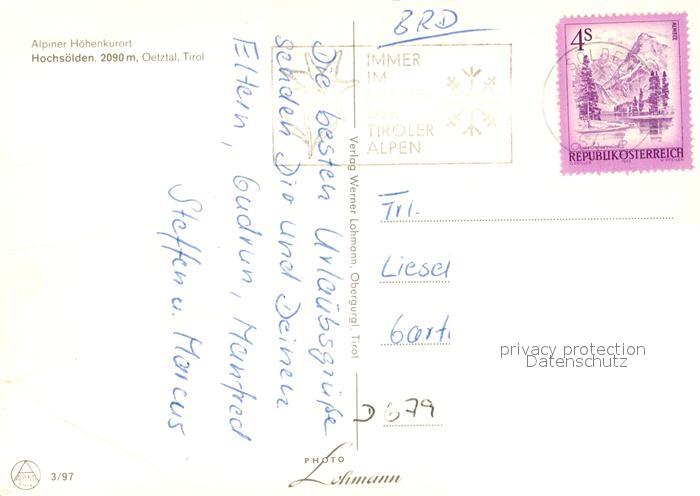 Alpiner Höhenkurort
Hochsölden. 2090 m, Oetztal, Tirol
BRD
IMMER
IM
DER
TIROLER
ALPEN
4s
ALMSEE
REPUBLIK ÖSTERREICH
Die besten Urlaubsgrüße
senden Dir und Deinen
Eltern, Gudrun, Manfred
Steffen u. Marcus
Verlag Werner Lohmann, Obergurgl, Tirol
Frl.
Liesel
Gart
D 679
privacy protection
Datenschutz
PHOTO
Lohmann
3/97